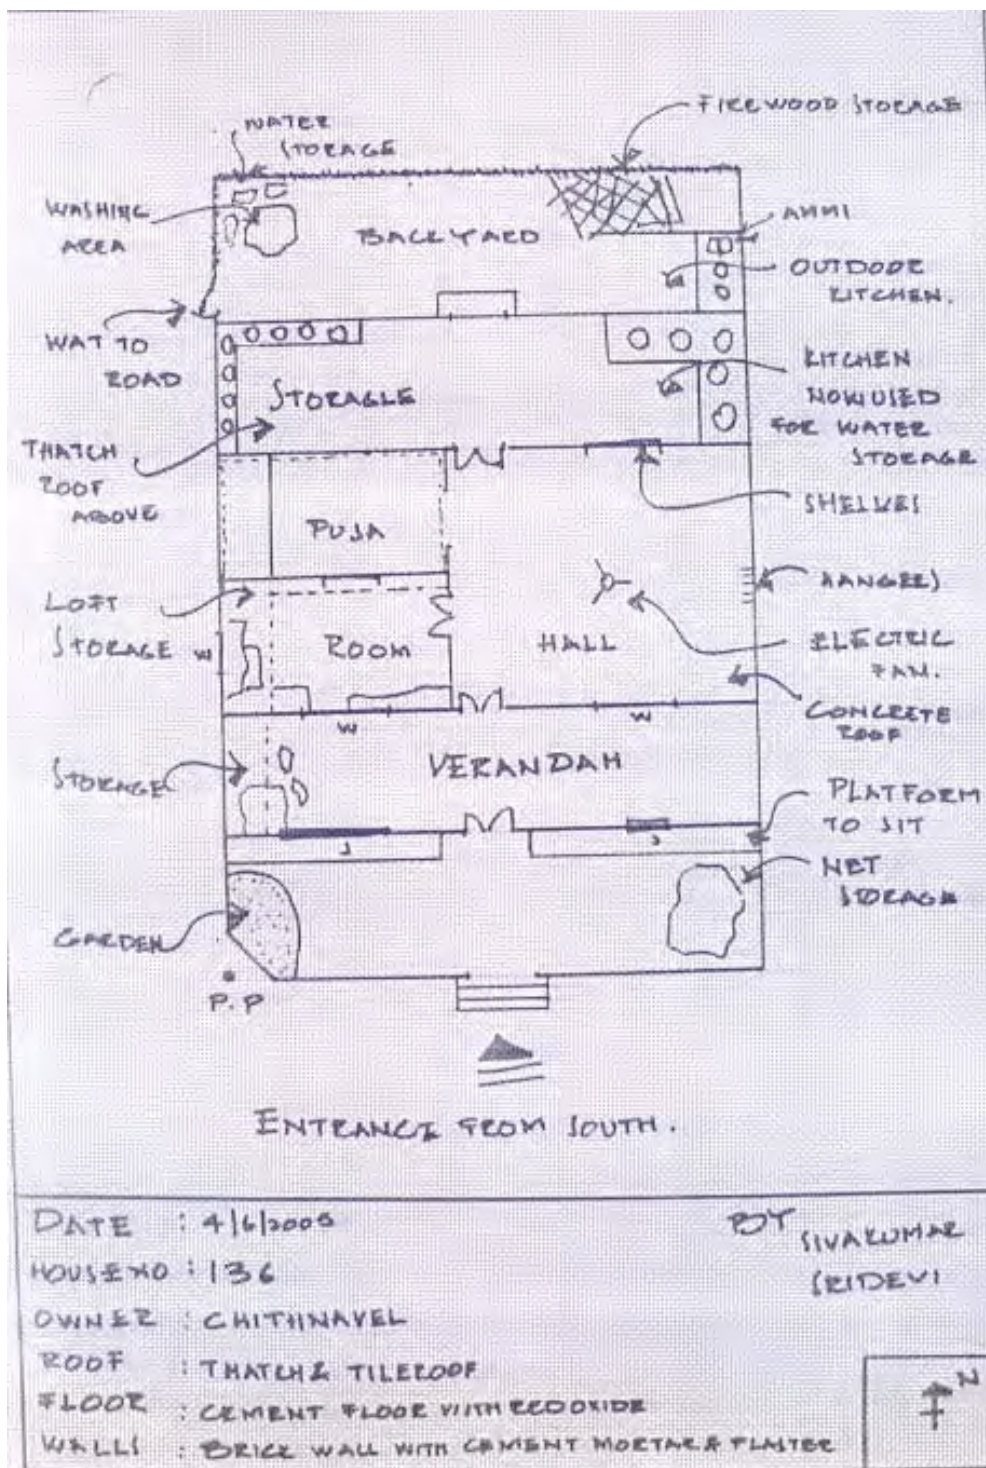 WATER
STORAGE
FIREWOOD STORAGE
WASHING
AREA
BACKYARD
AMMI
OUTDOOR
KITCHEN.
WAT TO
ROAD
STORAGLE
KITCHEN
NOW USED
FOR WATER
STORAGE
THATCH
ROOF
ABOVE
SHELVES
PUJA
LOFT
STORAGE
W
ROOM
HALL
HANGER)
ELECTRIC
FAN.
CONCRETE
ROOF
W
W
STORAGE
VERANDAH
PLATFORM
TO SIT
J
NET
STORAGE
GARDEN
P.P
ENTRANCE FROM SOUTH.
DATE : 4/6/2005
BY SIVAKUMAR
SRIDEVI
HOUSE NO : 136
OWNER : CHITHNAVEL
ROOF : THATCH & TILEROOF
FLOOR : CEMENT FLOOR WITH REDOXIDE
WALLS : BRICK WALL WITH CEMENT MORTAR & PLASTER
N